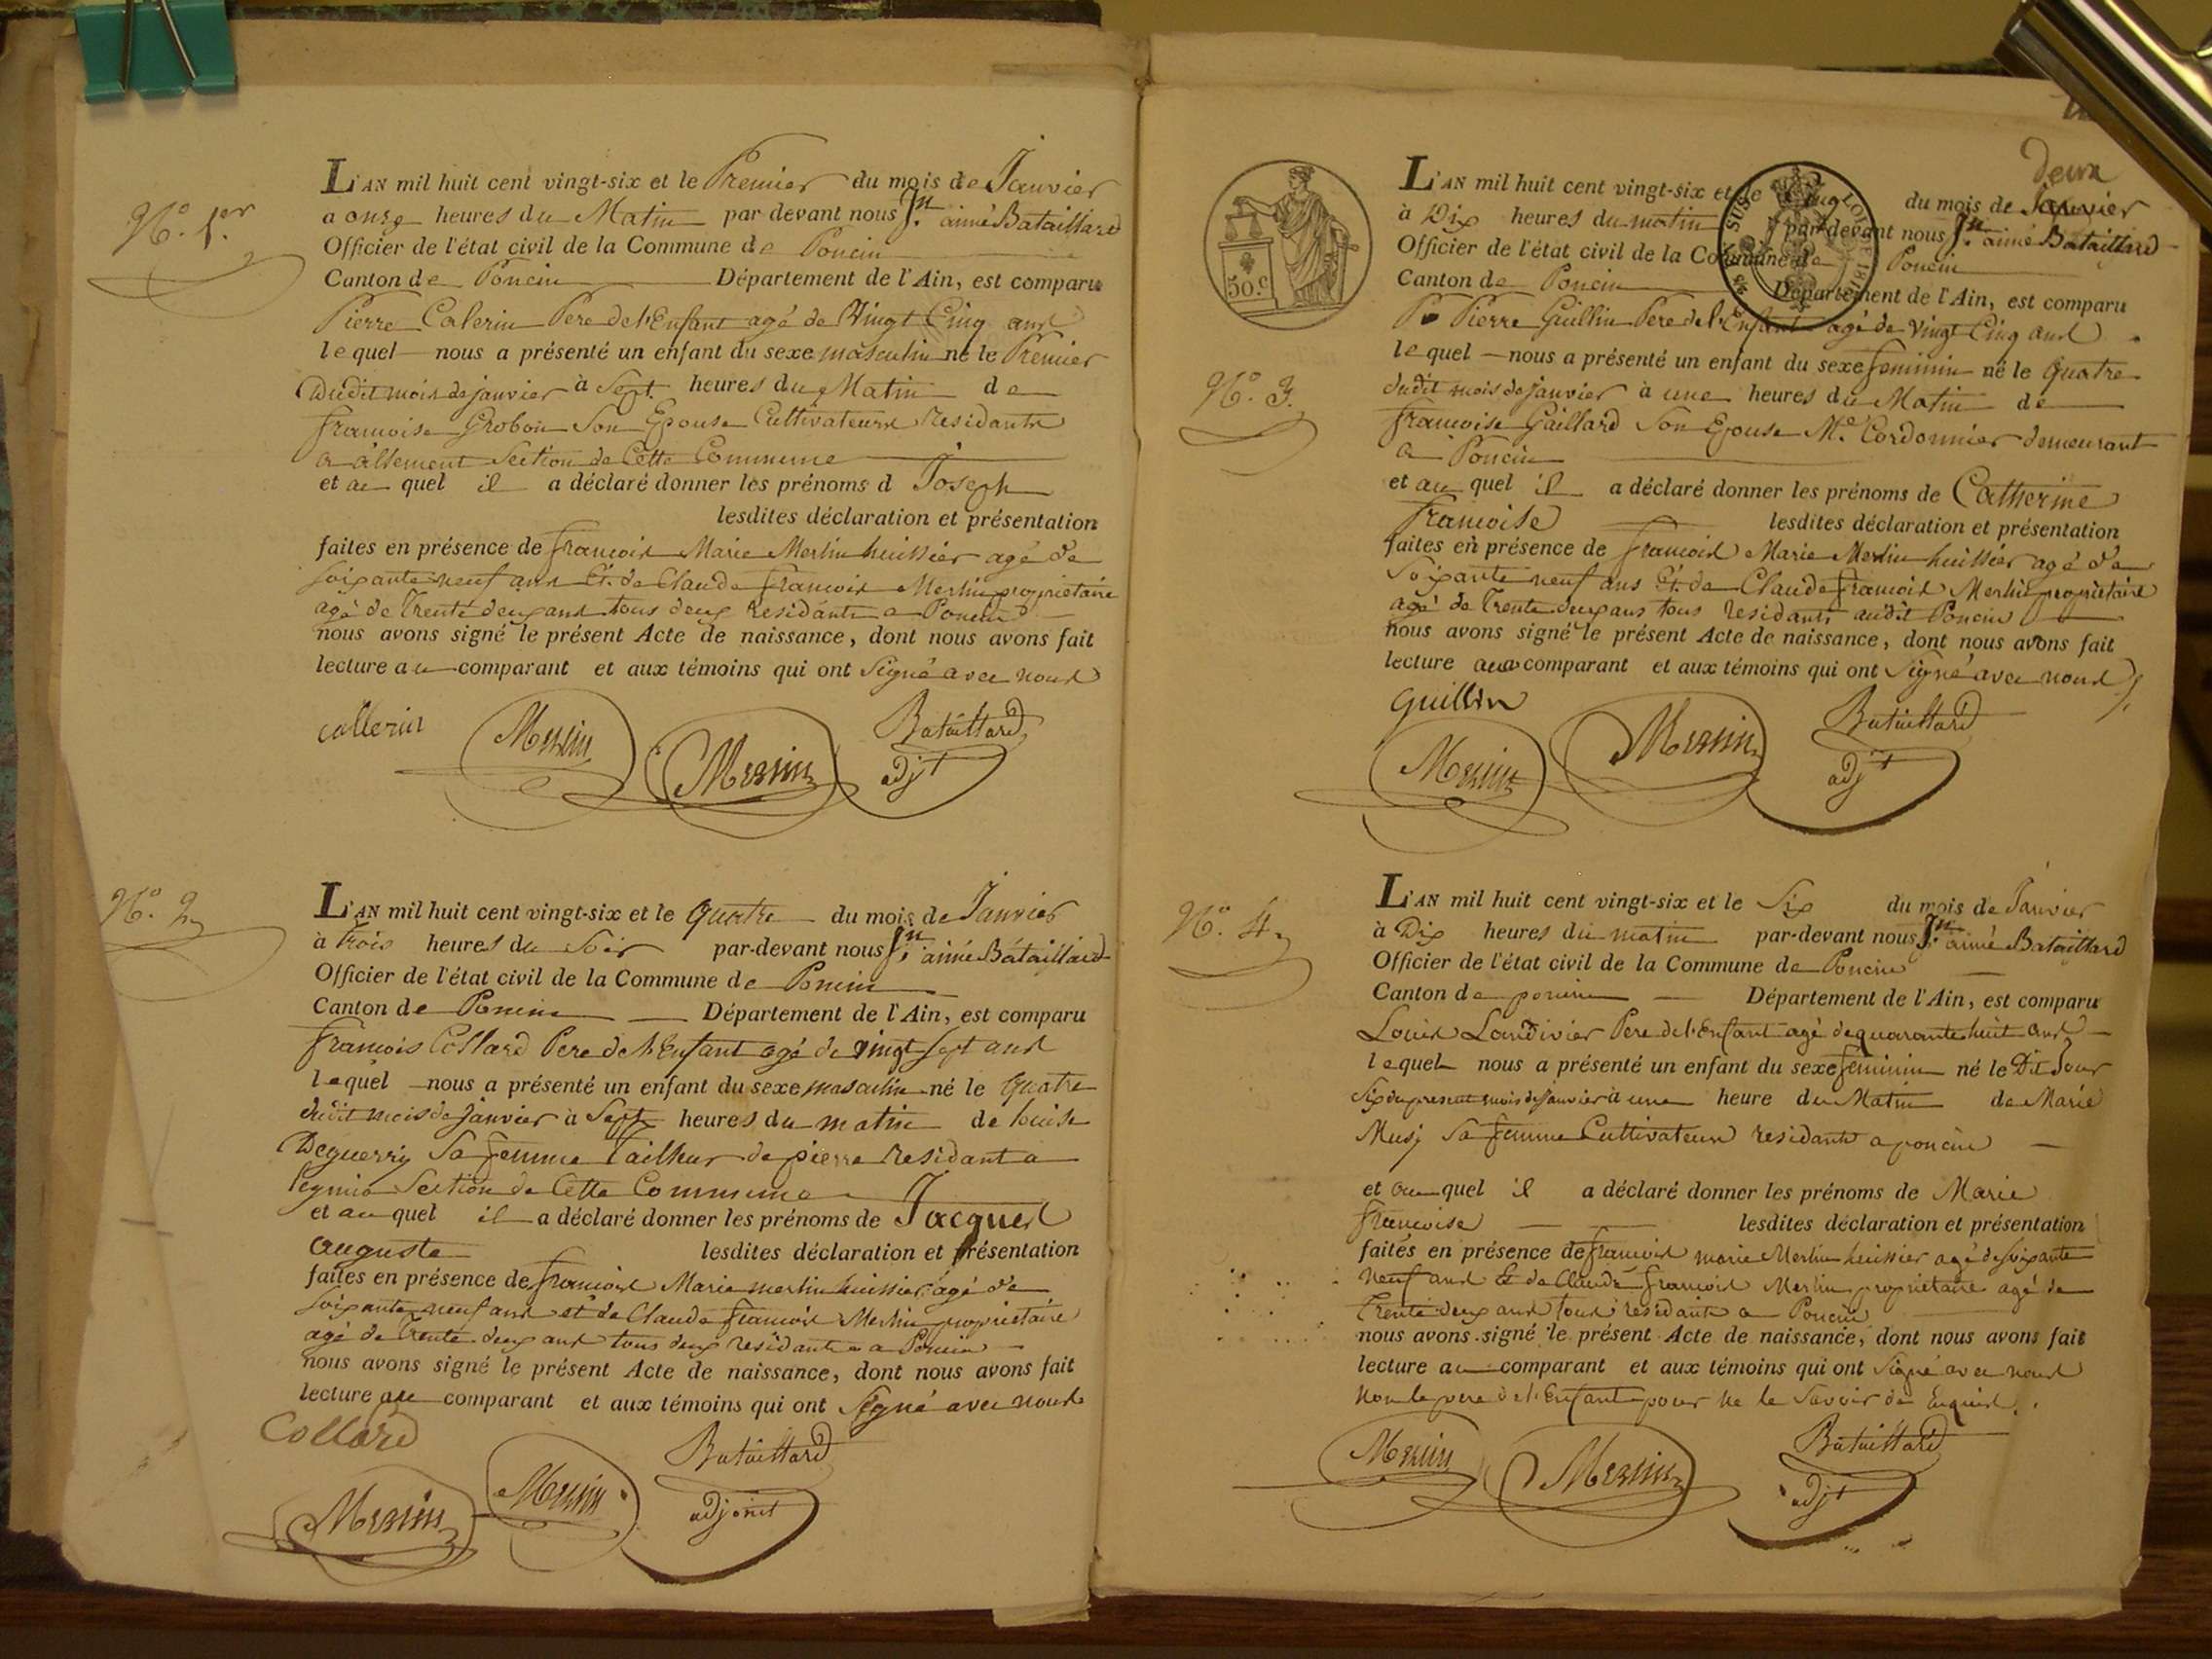 N.o 1.er
L'AN mil huit cent vingt-six et le Premier du mois de Janvier
a onze heures du Matin par-devant nous Jn. aimé Bataillard
Officier de l'état civil de la Commune de Poncin
Canton de Poncin Département de l'Ain, est comparu
Pierre Calerin Pere de l'Enfant agé de Vingt Cinq ans
lequel nous a présenté un enfant du sexe masculin né le Premier
Dudit mois de janvier à Sept heures du Matin de
francoise Grobon Son Epouse Cultivateurs Residants
a allement Section de Cette Commune
et au quel il a déclaré donner les prénoms d Joseph
lesdites déclaration et présentation
faites en présence de francois Marie Merlin huissier agé de
soixante neuf ans Et de Claude francois Merlin propriétaire
agé de Trente deux ans tous deux Residants a Poncin
nous avons signé le présent Acte de naissance, dont nous avons fait
lecture au comparant et aux témoins qui ont Signé avec nous
callerin Merlin Merlin Bataillard
adjt
N.o 2
L'AN mil huit cent vingt-six et le quatre du mois de Janvier
à Trois heures du Soir par-devant nous Jn. aimé Bataillard
Officier de l'état civil de la Commune de Poncin
Canton de Poncin Département de l'Ain, est comparu
francois Collard Pere de l'Enfant agé de vingt sept ans
lequel nous a présenté un enfant du sexe masculin né le quatre
dudit mois de janvier à Sept heures du matin de louise
Deguerry Sa femme Tailleur de pierre residant a
Section de Cette Commune
et au quel il a déclaré donner les prénoms de Jacques
auguste lesdites déclaration et présentation
faites en présence de francois Marie merlin huissier agé de
soixante neuf ans et de Claude francois Merlin propriétaire
agé de Trente deux ans tous deux residants a Poncin
nous avons signé le présent Acte de naissance, dont nous avons fait
lecture au comparant et aux témoins qui ont Signé avec nous
Collard Merlin Merlin Bataillard
adjoint
deux
L'AN mil huit cent vingt-six et le Cinq du mois de Janvier
à Dix heures du matin par-devant nous Jn. aimé Bataillard
Officier de l'état civil de la Commune de Poncin
50.c
Canton de Poncin Département de l'Ain, est comparu
Pierre Guillin Pere de l'Enfant agé de vingt Cinq ans
lequel nous a présenté un enfant du sexe feminin né le quatre
N.o 3.
dudit mois de janvier à une heures du Matin de
francoise Gaillard Son Epouse M.e Cordonnier demeurant
a Poncin
et au quel il a déclaré donner les prénoms de Catherine
francoise lesdites déclaration et présentation
faites en présence de francois Marie Merlin huissier agé de
Soixante neuf ans Et de Claude francois Merlin propriétaire
agé de Trente deux ans tous residants audit Poncin
nous avons signé le présent Acte de naissance, dont nous avons fait
lecture au comparant et aux témoins qui ont Signé avec nous
guillin Merlin Merlin Bataillard
adjt
N.o 4
L'AN mil huit cent vingt-six et le Six du mois de Janvier
à Dix heures du matin par-devant nous Jn. aimé Bataillard
Officier de l'état civil de la Commune de Poncin
Canton de poncin Département de l'Ain, est comparu
Louis Landivier Pere de l'Enfant agé de quarante huit ans
lequel nous a présenté un enfant du sexe feminin né le Dit Jour
Six du present mois de Janvier à une heure du Matin de Marie
Musy Sa femme Cultivateurs residants a poncin
et au quel il a déclaré donner les prénoms de Marie
francoise lesdites déclaration et présentation
faites en présence de francois marie Merlin huissier agé de soixante
neuf ans Et de Claude francois Merlin propriétaire agé de
Trente deux ans tous residants a Poncin
nous avons signé le présent Acte de naissance, dont nous avons fait
lecture au comparant et aux témoins qui ont Signé avec nous
Non le pere de l'Enfant pour ne le Savoir de Enquis.
Merlin Merlin Bataillard
adjt